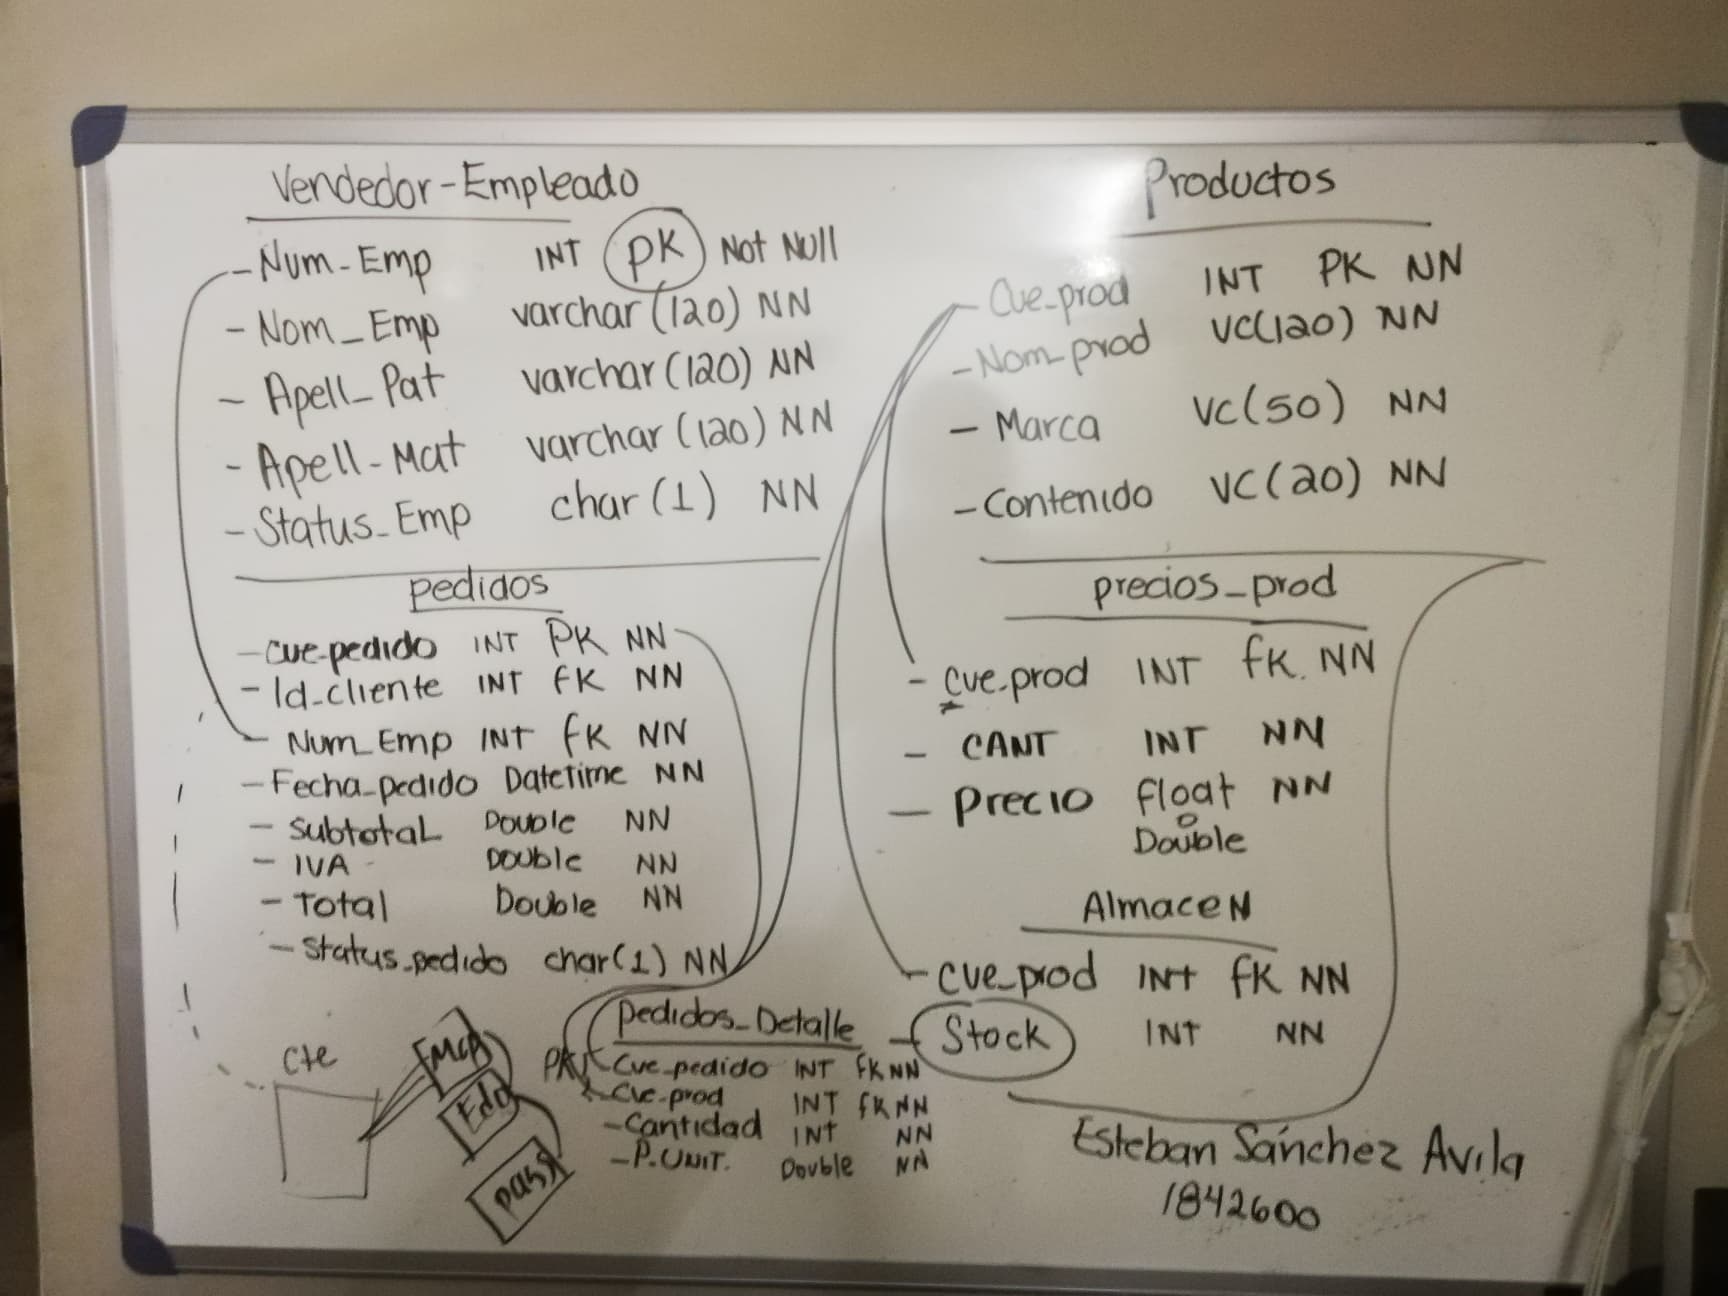 Vendedor-Empleado
- Num-Emp INT PK Not Null
- Nom_Emp varchar(120) NN
- Apell_Pat varchar(120) NN
- Apell-Mat varchar(120) NN
- Status_Emp char(1) NN
pedidos
- cve-pedido INT PK NN
- Id_cliente INT fK NN
- Num_Emp INT fK NN
- Fecha_pedido Datetime NN
- Subtotal Double NN
- IVA Double NN
- Total Double NN
- Status_pedido char(1) NN
Cte
Mcp
Edo
país
pedidos_Detalle
PK Cve_pedido INT fK NN
Cve-prod INT fK NN
- Cantidad INT NN
- P.UNIT. Double NN
Productos
- Cve_prod INT PK NN
- Nom_prod VC(120) NN
- Marca VC(50) NN
- Contenido VC(20) NN
precios_prod
- cve_prod INT fK. NN
- CANT INT NN
- Precio float NN
o
Double
Almacen
- Cve_prod INT fK NN
- Stock INT NN
Esteban Sánchez Avila
1842600